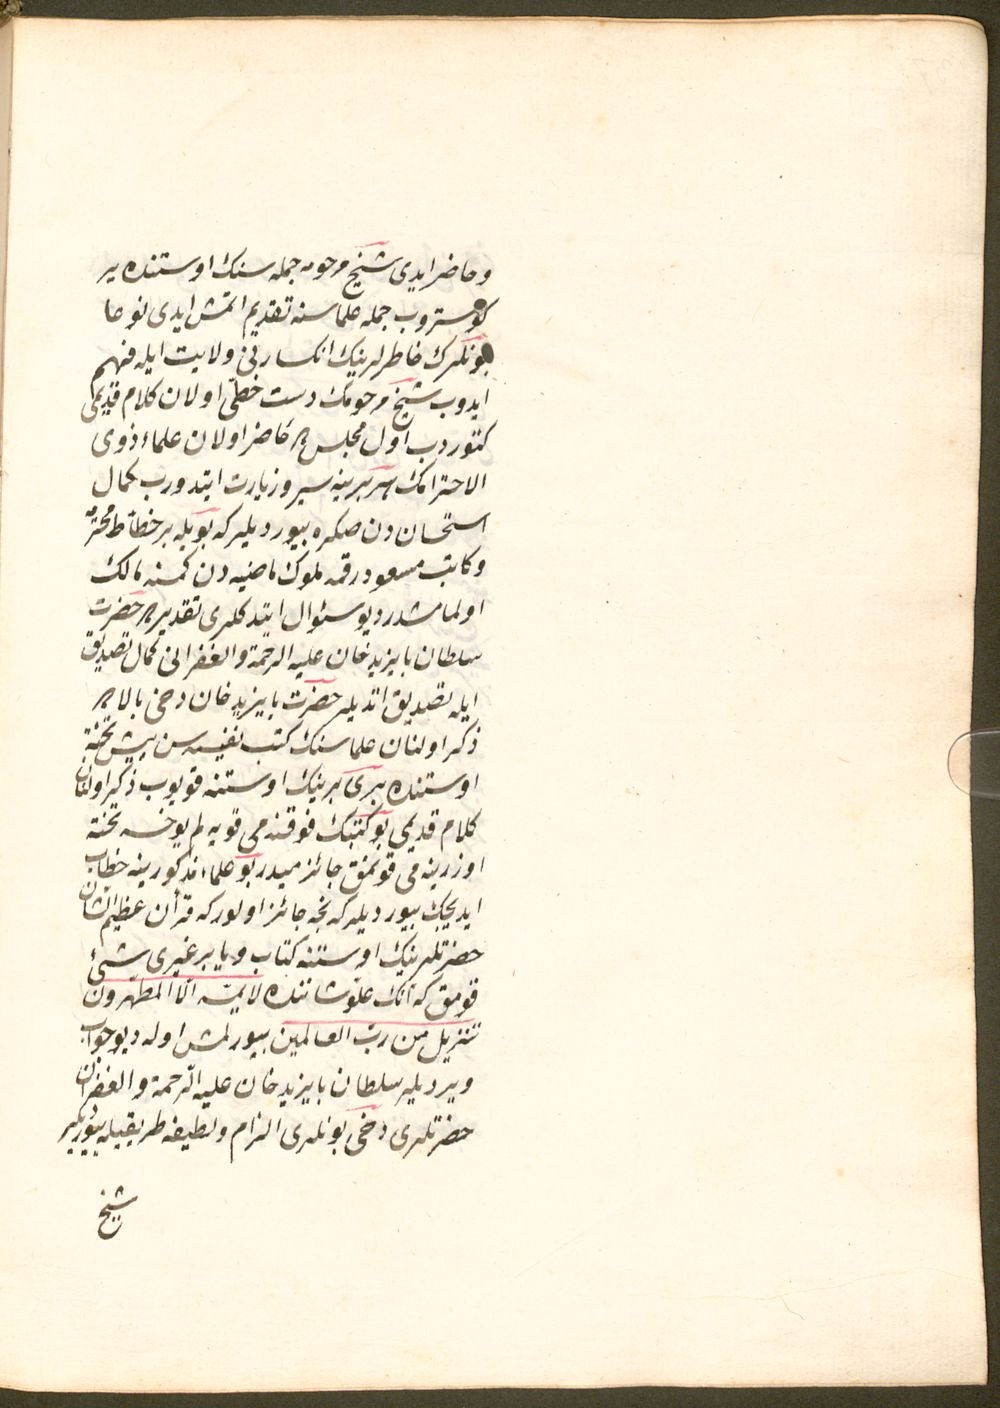 و حاضر ایدی شیخ مرحومه جمله سنك اوستنده یر
كوستروب جمله علماسنه تقدیم اتمش ایدی نوعا
بونلرك خاطرلرینك انكسارنی ولایت ایله فهم
ایدوب شیخ مرحومك دست خطی اولان كلام قدیمی
كتوردب اول مجلسده حاضر اولان علماء ذوی
الاحترامك سربرینه سیر و زیارت ایتدورب كمال
استحسان دن صكره بیوردیلر كه بویله بر خطاط محترم
و كاتب مسعود رقمه ملوك ماضیه دن كمسنه مالك
اولمامشدر دیو سئوال ایتدكلری تقدیرده حضرت
سلطان بایزید خان علیه الرحمة والغفرانی كمال تصدیق
ایله تصدیق اتدیلر حضرت بایزید خان دخی بالاده
ذكر اولنان علماسنك كتب نفیسه سن پیش تخته
اوستنده بری برینك اوستنه قویوب ذكر اولنان
كلام قدیمی بو كتبك فوقنده می قویه لم یوخسه تخته
اوزرینه می قومق جائز میدر بو علماء مذكورینه خطاب
ایدیجك بیوردیلر كه نجه جائز اولور كه قرأن عظیم الشان
حضرتلرینك اوستنه كتاب و یا بر غیری شئ
قومق كه انك علو شاننده لا یمسه الا المطهرون
تنزیل من رب العالمین بیورلمش اوله دیو جواب
ویردیلر سلطان بایزید خان علیه الرحمة والغفران
حضرتلری دخی بونلری الزام و لطیفه طریقیله بیوردیلر
شیخ